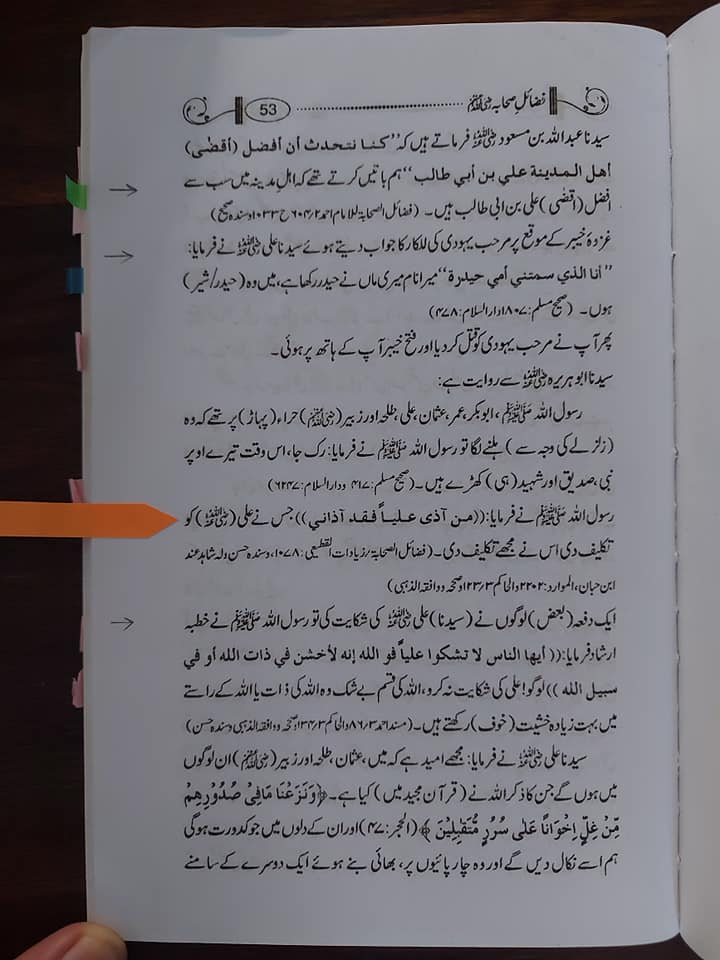 فضائلِ صحابہ رضی اللہ عنہم 53
سیدنا عبداللہ بن مسعود رضی اللہ عنہ فرماتے ہیں کہ ’’كنا نتحدث أن أفضل (أقضى)
أهل المدينة علي بن أبي طالب‘‘ ہم باتیں کرتے تھے کہ اہلِ مدینہ میں سب سے
افضل (اقضی) علی بن ابی طالب ہیں۔ (فضائل الصحابۃ للامام احمد ۶۰۴/۲ ح ۱۰۳۳ وسندہ صحیح)
غزوۂ خیبر کے موقع پر مرحب یہودی کی للکار کا جواب دیتے ہوئے سیدنا علی رضی اللہ عنہ نے فرمایا:
’’أنا الذي سمتني أمي حيدرة‘‘ میرا نام میری ماں نے حیدر رکھا ہے، میں وہ (حیدر/شیر)
ہوں۔ (صحیح مسلم: ۱۸۰۷ دارالسلام: ۴۷۸)
پھر آپ نے مرحب یہودی کو قتل کر دیا اور فتح خیبر آپ کے ہاتھ پر ہوئی۔
سیدنا ابو ہریرہ رضی اللہ عنہ سے روایت ہے:
رسول اللہ ﷺ، ابوبکر، عمر، عثمان، علی، طلحہ اور زبیر (رضی اللہ عنہم) حراء (پہاڑ) پر تھے کہ وہ
(زلزلے کی وجہ سے) ہلنے لگا تو رسول اللہ ﷺ نے فرمایا: رک جا، اس وقت تیرے اوپر
نبی، صدیق اور شہید (ہی) کھڑے ہیں۔ (صحیح مسلم: ۴۱۷ ودارالسلام: ۶۲۴۷)
رسول اللہ ﷺ نے فرمایا: ((من آذى علياً فقد آذاني)) جس نے علی (رضی اللہ عنہ) کو
تکلیف دی اس نے مجھے تکلیف دی۔ (فضائل الصحابۃ/زیادات القطیعی: ۱۰۷۸، وسندہ حسن ولہ شاہد عند
ابن حبان، الموارد: ۲۲۰۲ والحاکم ۱۲۳/۳ وصححہ ووافقہ الذہبی)
ایک دفعہ (بعض) لوگوں نے (سیدنا) علی رضی اللہ عنہ کی شکایت کی تو رسول اللہ ﷺ نے خطبہ
ارشاد فرمایا: ((أيها الناس لا تشكوا علياً فو الله إنه لأخشن في ذات الله أو في
سبيل الله)) لوگو! علی کی شکایت نہ کرو، اللہ کی قسم بے شک وہ اللہ کی ذات یا اللہ کے راستے
میں بہت زیادہ خشیت (خوف) رکھتے ہیں۔ (مسند احمد ۸۶/۳ والحاکم ۱۳۴/۳ وصححہ ووافقہ الذہبی وسندہ حسن)
سیدنا علی رضی اللہ عنہ نے فرمایا: مجھے امید ہے کہ میں، عثمان، طلحہ اور زبیر (رضی اللہ عنہم) ان لوگوں
میں ہوں گے جن کا ذکر اللہ نے (قرآن مجید میں) کیا ہے۔ ﴿وَنَزَعْنَا مَا فِیْ صُدُوْرِهِمْ
مِّنْ غِلٍّ اِخْوَانًا عَلٰی سُرُرٍ مُّتَقٰبِلِیْنَ﴾ (الحجر: ۴۷) اور ان کے دلوں میں جو کدورت ہوگی
ہم اسے نکال دیں گے اور وہ چارپائیوں پر، بھائی بنے ہوئے ایک دوسرے کے سامنے